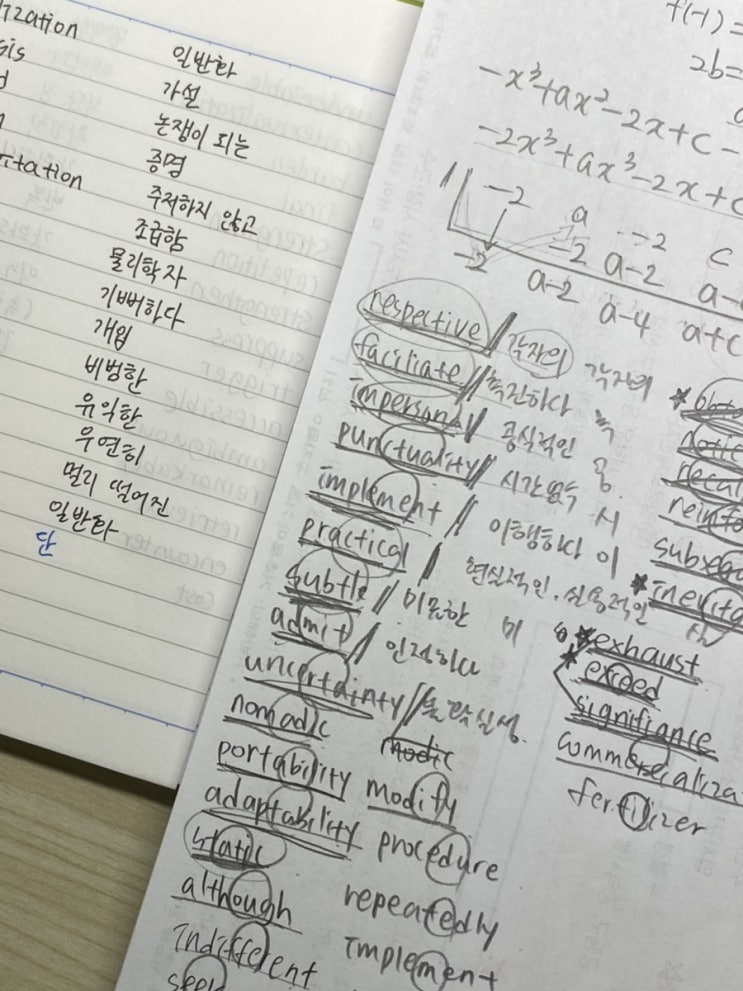 일반화
가설
논쟁이 되는
증명
주저하지 않고
조급함
물리학자
기뻐하다
개입
비범한
유익한
우연히
멀리 떨어진
일반화
단
f(-1) =
2b=
-x³+ax²-2x+c-
-2x³+ax³-2x+c
-2 a -2 c
-2 -2 a-2
a-2 a-4 a+c
respective / 각자의 각자의
faciliate // 촉진하다 촉
impersonal // 공식적인 공
punctuality // 시간엄수 시
implement // 이행하다 이
practical / 현실적인, 실용적인
subtle // 미묘한 미
admit / 인정하다
uncertainty // 불확실성
nomadic modic
portability modify
adaptability procedure
static
although repeatedly
indifferent implement
exhaust
exceed
signifiance
fertilizer